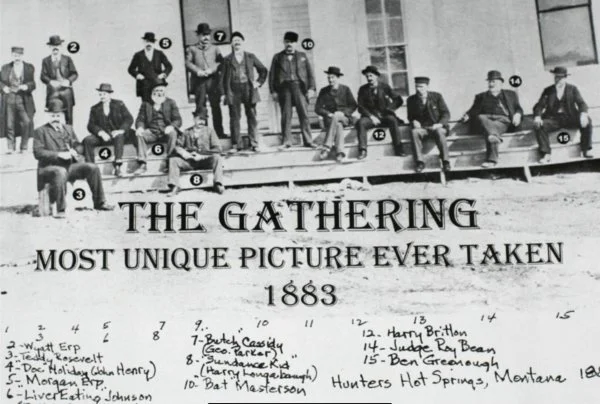 2
5
7
10
14
4
6
12
15
3
8
THE GATHERING
MOST UNIQUE PICTURE EVER TAKEN
1883
1 2 4 5 7 9 10 11 12 13 14 15
3 6 8
2-Wyatt Erp
3-Teddy Rosevelt
4-Doc Holiday (John Henry)
5-Morgan Erp
6-LiverEating Johnson
7-Butch Cassidy
(Geo. Parker)
8-Sundance Kid
(Harry Longabaugh)
10-Bat Masterson
12-Harry Britton
14-Judge Roy Bean
15-Ben Greenough
Hunters Hot Springs, Montana